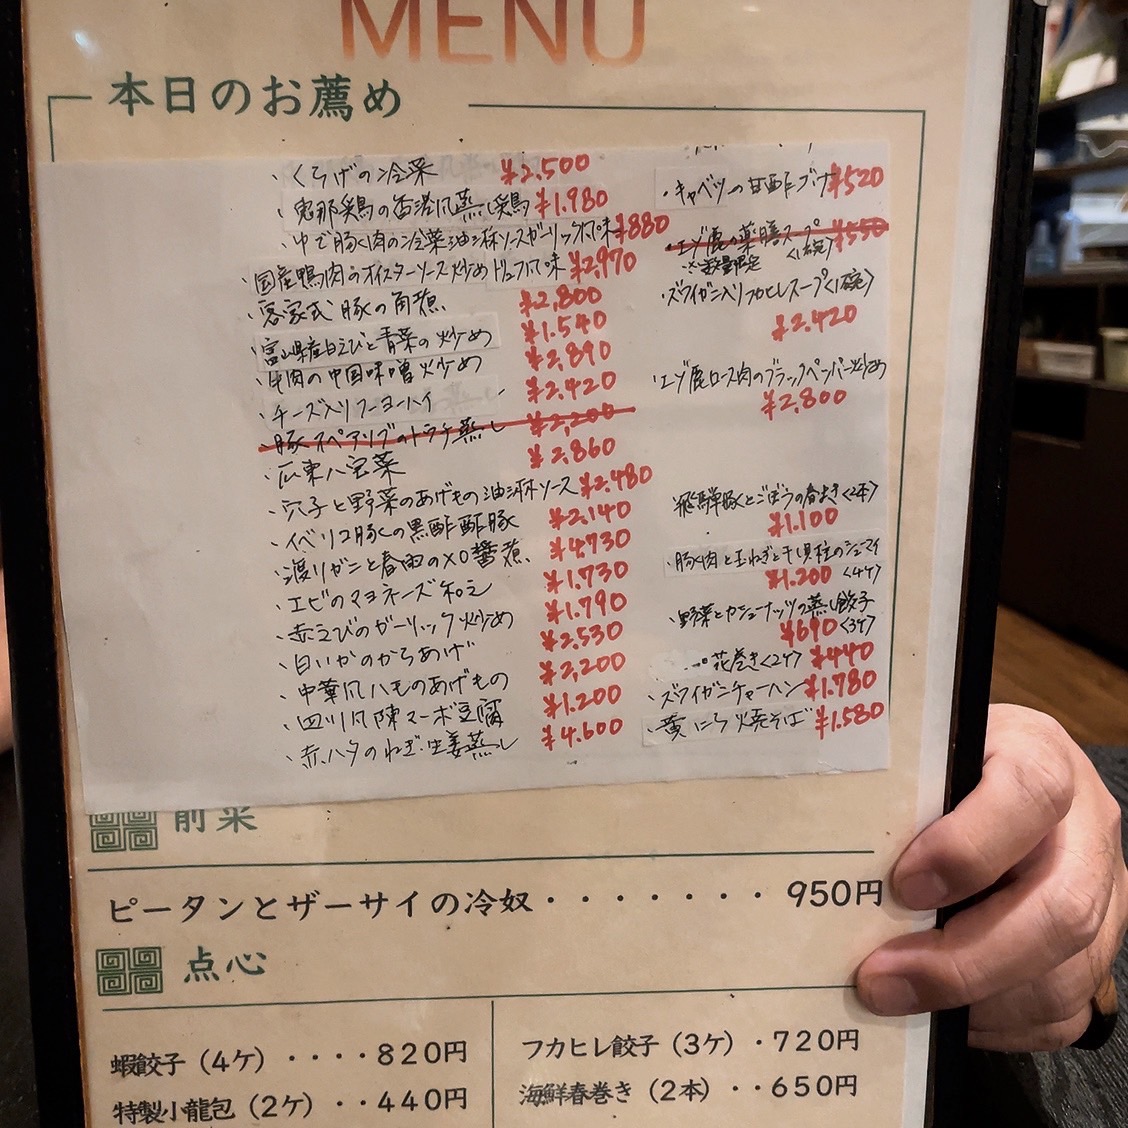 MENU
本日のお薦め
・くらげの冷菜 ¥2.500
・恵那鶏の香港風蒸し鶏 ¥1.980
・ゆで豚く肉の冷菜油淋ソースガーリック風味 ¥880
・国産鴨肉のオイスターソース炒めトリュフ風味 ¥2.970
・客家式豚の角煮 ¥2.800
・富山県産白えびと青菜の炒め ¥1.540
・牛肉の中国味噌炒め ¥2.890
・チーズ入りフーヨーハイ ¥2.420
・豚スペアリブのトウチ蒸し ¥2,200
・広東八宝菜 ¥2.860
・穴子と野菜のあげもの油淋ソース ¥2.480
・イベリコ豚の黒酢酢豚 ¥2.140
・渡りガニと春雨のXO醤煮 ¥4730
・エビのマヨネーズ和え ¥1.730
・赤えびのガーリック炒め ¥1.790
・白いかのからあげ ¥2.530
・中華風ハモのあげもの ¥2,200
・四川風陳マーボ豆腐 ¥1.200
・赤ハタのねぎ・生姜蒸し ¥4.600
・キャベツの甘酢づけ ¥520
・エゾ鹿の薬膳スープ ¥550
※数量限定 <1碗>
・ズワイガニ入りフカヒレスープ<1碗>
¥2.420
・エゾ鹿ロース肉のブラックペッパー炒め
¥2.800
・飛騨豚とごぼうの春まき<2本>
¥1.100
・豚肉と玉ねぎと干し貝柱のシューマイ
¥1.200 <4ケ>
・野菜とカシューナッツの蒸し餃子
¥690 <3ケ>
花巻き<2ケ> ¥440
・ズワイガニチャーハン ¥1.780
・黄にら焼そば ¥1.580
前菜
ピータンとザーサイの冷奴・・・・・・・950円
点心
蝦餃子（4ケ）・・・・820円
特製小龍包（2ケ）・・440円
フカヒレ餃子（3ケ）・720円
海鮮春巻き（2本）・・650円